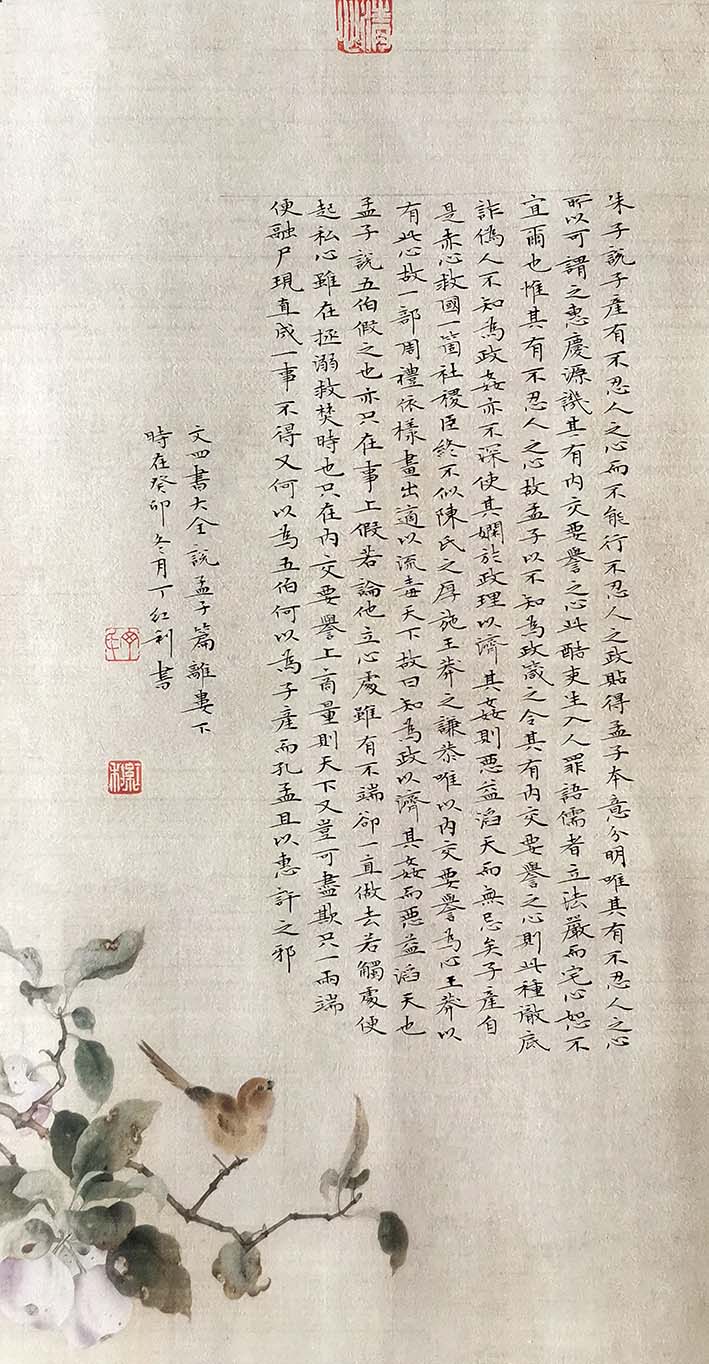 朱子說子產有不忍人之心而不能行不忍人之政貼得孟子本意分明唯其有不忍人之心
所以可謂之惠慶源譏其有內交要譽之心此酷吏生入人罪語儒者立法嚴而宅心恕不
宜爾也惟其有不忍人之心故孟子以不知為政箴之令其有內交要譽之心則此種徹底
詐偽人不知為政姦亦不深使其嫻於政理以濟其姦則惡益滔天而無忌矣子產自
是赤心救國一箇社稷臣終不似陳氏之厚施王莽之謙恭唯以內交要譽為心王莽以
有此心故一部周禮依樣畫出適以流毒天下故曰知為政以濟其姦而惡益滔天也
孟子說五伯假之也亦只在事上假若論他立心處雖有不端卻一直做去若觸處便
起私心雖在拯溺救焚時也只在內交要譽上商量則天下又豈可盡欺只一兩端
便融尸現直成一事不得又何以為五伯何以為子產而孔孟且以惠許之邪
文四書大全說孟子篇離婁下
時在癸卯冬月丁紅利書